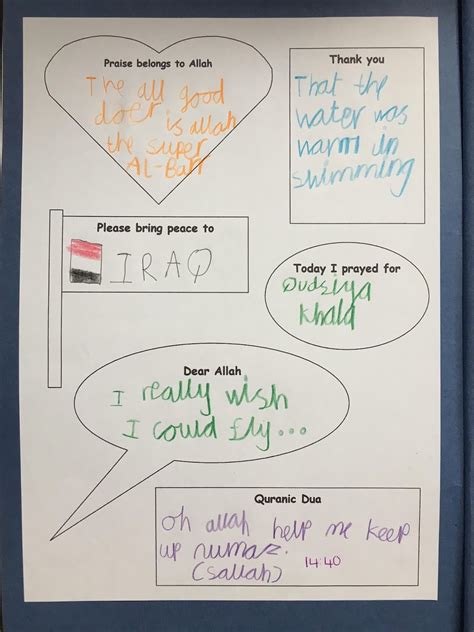 Praise belongs to Allah
The all good
doer is allah
the super
AL-Barr
Thank you
That the
water was
warm in
swimming
Please bring peace to
IRAQ
Today I prayed for
Qudsiya
Khala
Dear Allah
I really wish
I could fly...
Quranic Dua
Oh allah help me keep
up numaz.
(Sallah) 14:40